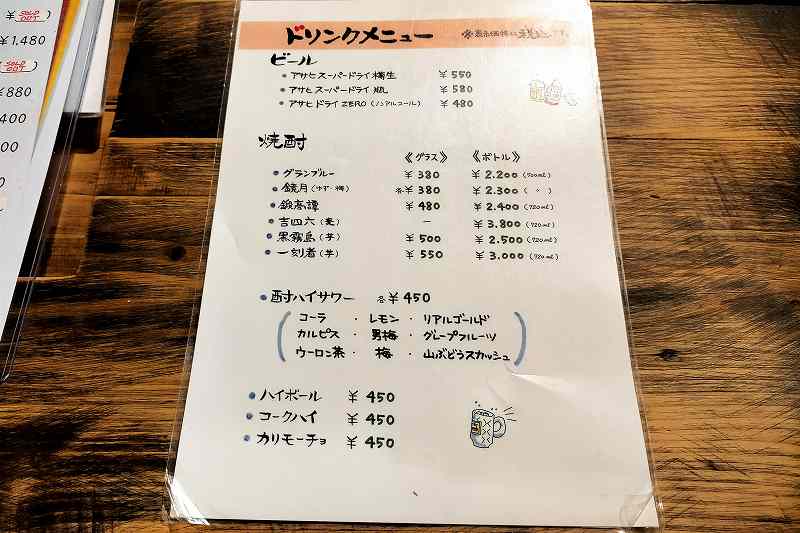 ¥ SOLD OUT
¥1.480
SOLD OUT
¥880
400
00
ドリンクメニュー ※表示価格は税込です。
ビール
・アサヒスーパードライ樽生 ¥550
・アサヒスーパードライ瓶 ¥580
・アサヒドライZERO(ノンアルコール) ¥480
焼酎
《グラス》 《ボトル》
・グランブルー ¥380 ¥2.200(700ml)
・鏡月(ゆず・梅) 各¥380 ¥2.300( 〃 )
・鍛高譚 ¥480 ¥2.400(720ml)
・吉四六(麦) ― ¥3.800(720ml)
・黒霧島(芋) ¥500 ¥2.500(720ml)
・一刻者(芋) ¥550 ¥3.000(720ml)
・酎ハイサワー 各¥450
コーラ ・ レモン ・ リアルゴールド
カルピス ・ 男梅 ・ グレープフルーツ
ウーロン茶 ・ 梅 ・ 山ぶどうスカッシュ
・ハイボール ¥450
・コークハイ ¥450
・カリモーチョ ¥450